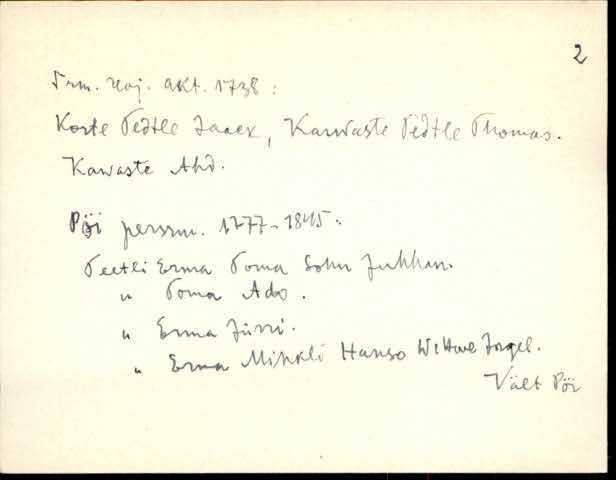 2
Trm. Maj. akt. 1738:
Korte Pedtle Jaack, Karwaste Pedtle Thomas.
Kawaste Ahd.
Pöi persrm. 1777-1845:
Peetli Erma Toma Sohn Juhhan.
" Toma Ado.
" Erma Jürri.
" Erma Mihkli Hanso Wittwe
Vält Pöi